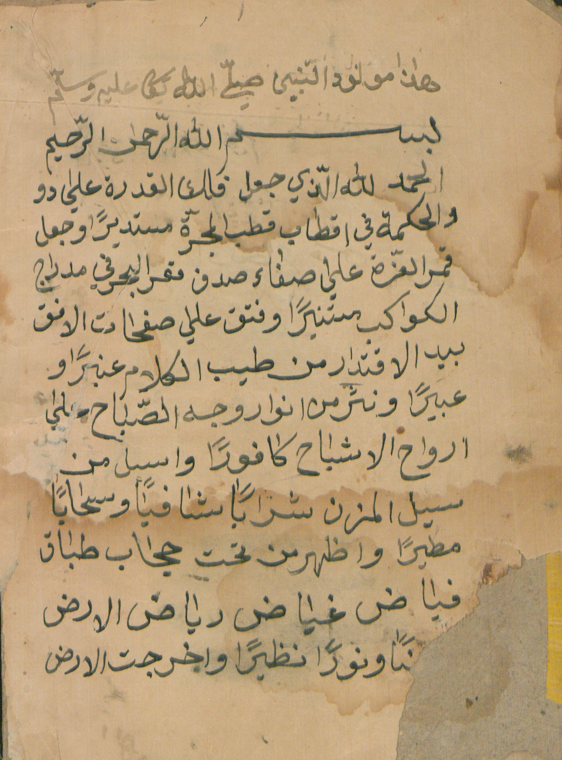 هذا مولود النبي صلّى الله تعالى عليه وسلّم
بسم الله الرّحمن الرّحيم
الحمد لله الّذي جعل فلك القدرة على دو
والحكمة في اقطاب قطب المجرّة مستديرًا وجعل
قمر العزّة على صفاء صدف قعر البحر في مدارج
الكواكب مستنيرًا وفتق على صفحات الافق
بيد الاقتدار من طيب الكلام عنبرًا و
عبيرًا ونثر من انوار وجه الصّباح على
ارواح الاشباح كافورًا واسبل من
سبيل المزن شرابًا شافيًا وسحابًا
مطيرًا واظهر من تحت حجاب طباق
فياض غياض رياض الارض
ونورًا نظيرًا واخرجت الارض